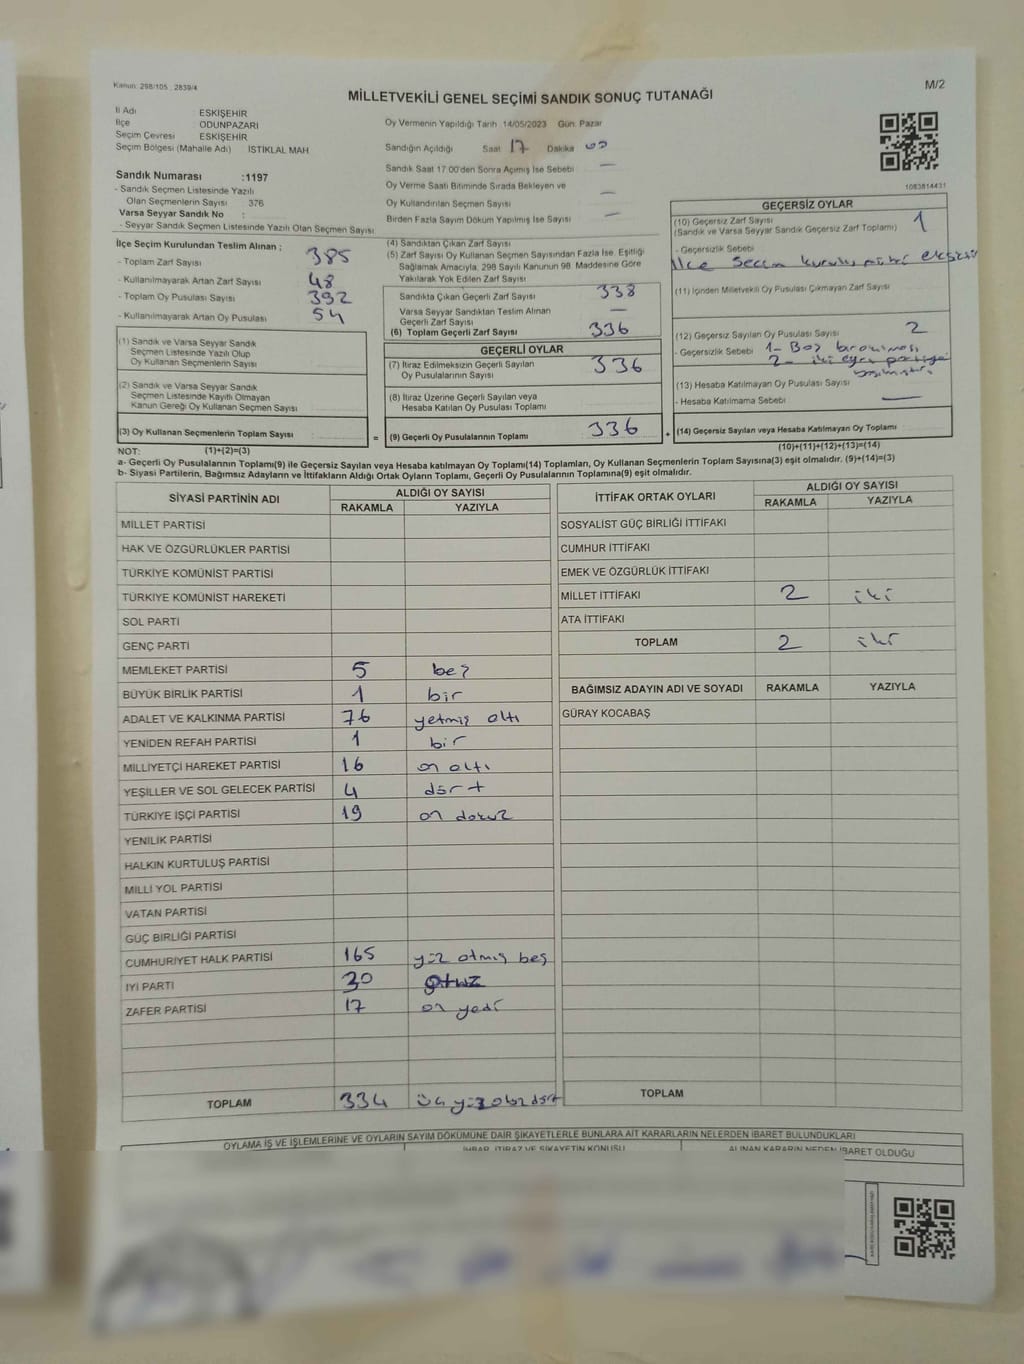 Kanun: 298/105 , 2839/4
M/2
MİLLETVEKİLİ GENEL SEÇİMİ SANDIK SONUÇ TUTANAĞI
İl Adı ESKİŞEHİR
İlçe ODUNPAZARI
Seçim Çevresi ESKİŞEHİR
Seçim Bölgesi (Mahalle Adı) İSTİKLAL MAH
Sandık Numarası :1197
- Sandık Seçmen Listesinde Yazılı
Olan Seçmenlerin Sayısı 376
Varsa Seyyar Sandık No :
- Seyyar Sandık Seçmen Listesinde Yazılı Olan Seçmen Sayısı
Oy Vermenin Yapıldığı Tarih 14/05/2023 Gün: Pazar
Sandığın Açıldığı Saat 17 Dakika 00
Sandık Saat 17:00'den Sonra Açımış İse Sebebi —
Oy Verme Saati Bitiminde Sırada Bekleyen ve
Oy Kullandırılan Seçmen Sayısı —
Birden Fazla Sayım Döküm Yapılmış İse Sayısı —
1083814431
İlçe Seçim Kurulundan Teslim Alınan :
- Toplam Zarf Sayısı 385
- Kullanılmayarak Artan Zarf Sayısı 48
- Toplam Oy Pusulası Sayısı 392
- Kullanılmayarak Artan Oy Pusulası 54
(1) Sandık ve Varsa Seyyar Sandık
Seçmen Listesinde Yazılı Olup
Oy Kullanan Seçmenlerin Sayısı
(2) Sandık ve Varsa Seyyar Sandık
Seçmen Listesinde Kayıtlı Olmayan
Kanun Gereği Oy Kullanan Seçmen Sayısı
(3) Oy Kullanan Seçmenlerin Toplam Sayısı =
(4) Sandıktan Çıkan Zarf Sayısı
(5) Zarf Sayısı Oy Kullanan Seçmen Sayısından Fazla İse, Eşitliği
Sağlamak Amacıyla, 298 Sayılı Kanunun 98. Maddesine Göre
Yakılarak Yok Edilen Zarf Sayısı
Sandıkta Çıkan Geçerli Zarf Sayısı 338
Varsa Seyyar Sandıktan Teslim Alınan
Geçerli Zarf Sayısı —
(6) Toplam Geçerli Zarf Sayısı 336
GEÇERLİ OYLAR
(7) İtiraz Edilmeksizin Geçerli Sayılan
Oy Pusulalarının Sayısı 336
(8) İtiraz Üzerine Geçerli Sayılan veya
Hesaba Katılan Oy Pusulası Toplamı
(9) Geçerli Oy Pusulalarının Toplamı 336 +
GEÇERSİZ OYLAR
(10) Geçersiz Zarf Sayısı 1
(Sandık ve Varsa Seyyar Sandık Geçersiz Zarf Toplamı)
- Geçersizlik Sebebi
İlçe Seçim kurulu
(11) İçinden Milletvekili Oy Pusulası Çıkmayan Zarf Sayısı
(12) Geçersiz Sayılan Oy Pusulası Sayısı 2
- Geçersizlik Sebebi 1- Boş bırakılması
2- iki ayrı partiye
basılmıştır
(13) Hesaba Katılmayan Oy Pusulası Sayısı
- Hesaba Katılmama Sebebi —
(14) Geçersiz Sayılan veya Hesaba Katılmayan Oy Toplamı
NOT: (1)+(2)=(3)
(10)+(11)+(12)+(13)=(14)
a- Geçerli Oy Pusulalarının Toplamı(9) ile Geçersiz Sayılan veya Hesaba katılmayan Oy Toplamı(14) Toplamları, Oy Kullanan Seçmenlerin Toplam Sayısına(3) eşit olmalıdır. (9)+(14)=(3)
b- Siyasi Partilerin, Bağımsız Adayların ve İttifakların Aldığı Ortak Oyların Toplamı, Geçerli Oy Pusulalarının Toplamına(9) eşit olmalıdır.
SİYASİ PARTİNİN ADI ALDIĞI OY SAYISI
RAKAMLA YAZIYLA
MİLLET PARTİSİ
HAK VE ÖZGÜRLÜKLER PARTİSİ
TÜRKİYE KOMÜNİST PARTİSİ
TÜRKİYE KOMÜNİST HAREKETİ
SOL PARTİ
GENÇ PARTİ
MEMLEKET PARTİSİ 5 beş
BÜYÜK BİRLİK PARTİSİ 1 bir
ADALET VE KALKINMA PARTİSİ 76 yetmiş altı
YENİDEN REFAH PARTİSİ 1 bir
MİLLİYETÇİ HAREKET PARTİSİ 16 on altı
YEŞİLLER VE SOL GELECEK PARTİSİ 4 dört
TÜRKİYE İŞÇİ PARTİSİ 19 on dokuz
YENİLİK PARTİSİ
HALKIN KURTULUŞ PARTİSİ
MİLLİ YOL PARTİSİ
VATAN PARTİSİ
GÜÇ BİRLİĞİ PARTİSİ
CUMHURİYET HALK PARTİSİ 165 yüz atmış beş
İYİ PARTİ 30 otuz
ZAFER PARTİSİ 17 on yedi
TOPLAM 334 üç yüz otuz dört
İTTİFAK ORTAK OYLARI ALDIĞI OY SAYISI
RAKAMLA YAZIYLA
SOSYALİST GÜÇ BİRLİĞİ İTTİFAKI
CUMHUR İTTİFAKI
EMEK VE ÖZGÜRLÜK İTTİFAKI
MİLLET İTTİFAKI 2 iki
ATA İTTİFAKI
TOPLAM 2 iki
BAĞIMSIZ ADAYIN ADI VE SOYADI RAKAMLA YAZIYLA
GÜRAY KOCABAŞ
TOPLAM
OYLAMA İŞ VE İŞLEMLERİNE VE OYLARIN SAYIM DÖKÜMÜNE DAİR ŞİKAYETLERLE BUNLARA AİT KARARLARIN NELERDEN İBARET BULUNDUKLARI
İHBAR, İTİRAZ VE ŞİKAYETİN KONUSU
ALINAN KARARIN NEDEN İBARET OLDUĞU